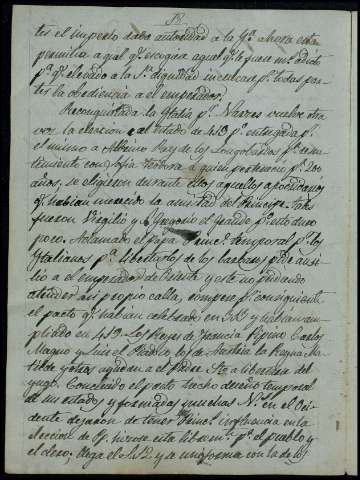 18.
tes el imperio daba autoridad a la Yª ahora esta
permitia a qal qᵉ escogiera aquel qᵉ le fuera ms adicto
pª qᵉ elevado a la Sª dignidad inculcara pʳ todas par-
tes la obediencia a el emperador.
Reconquistada la Ytalia pʳ Narses vuelve otra
vez la eleccion al estado de 483 pʳ entregada pʳ
el mismo a Alboino Rey de los Longobardos pʳ
timiento con Sofia Teodora a quien pertenecio pʳ 200
años, se eligieron durante ellos aquellos
qᵉ habian merecido la amistad del Principe. Tales
fueron Virgilio y S. Gregorio el Grande pº esto duro
poco. Aclamado el Papa Princᵉ temporal pʳ los
Ytalianos pª libertarlos de los barbaros pide auxi-
lio a el emperador de Oriente y este no pudiendo
atender asi propio calla, rompese pʳ consiguiente
el pacto qᵉ habian celebrado en
pliado en 483. Los Reyes de Francia Pipino Carlos
Magno y Luis el Piadoso, los de Austria la Rayna Ma-
tilde y otros ayudan a el Padre Sto a libertarse del
yugo. Concluido el pacto hecho dueño temporal
de sus estados y formadas muchas Nˢ en el Occi-
dente dejaron de tener Princˢ influencia en la
eleccion de Pf. siendo esta libre ms pª el pueblo y
el clero; llega el S. 12 y a uniforma con la de los